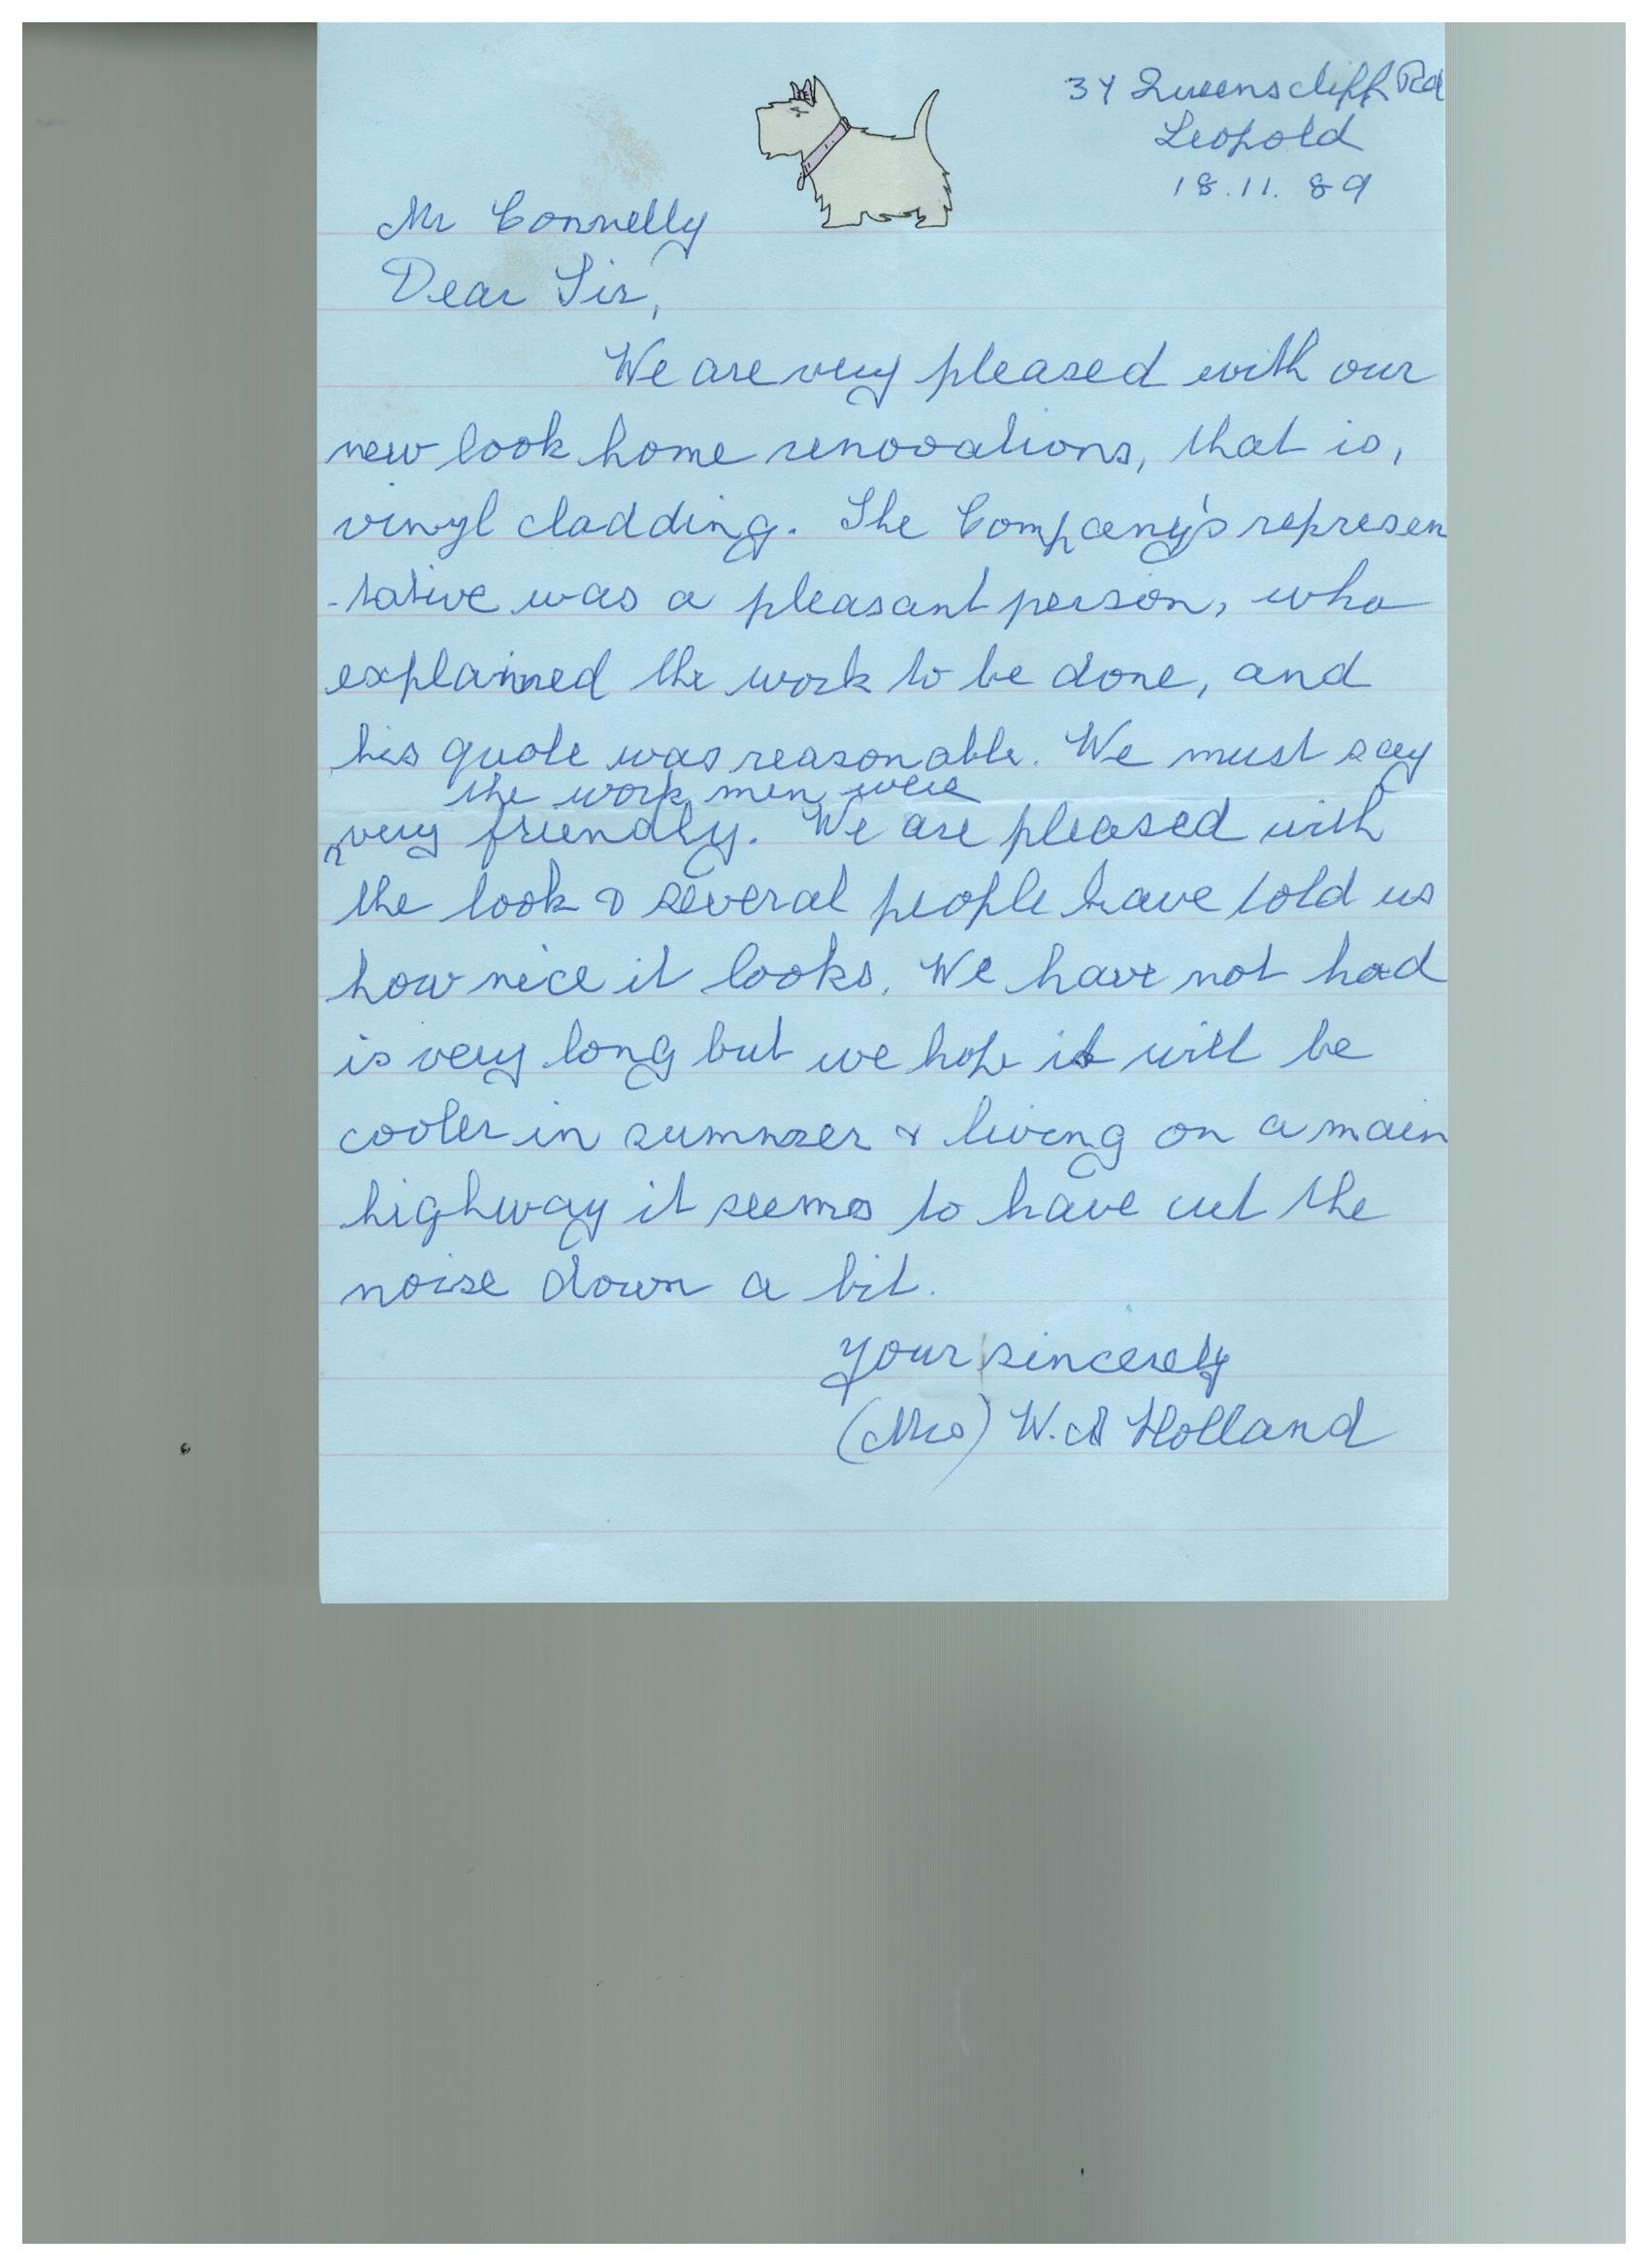 34 Queenscliff Rd
Leopold
18.11.89
Mr Connelly
Dear Sir,
We are very pleased with our
new look home renovations, that is,
vinyl cladding. The Company's represen
-tative was a pleasant person, who
explained the work to be done, and
his quote was reasonable. We must say
the work men were
very friendly. We are pleased with
the look & several people have told us
how nice it looks. We have not had
is very long but we hope it will be
cooler in summer & living on a main
highway it seems to have cut the
noise down a bit.
Your sincerely
(Mrs) W. A Holland